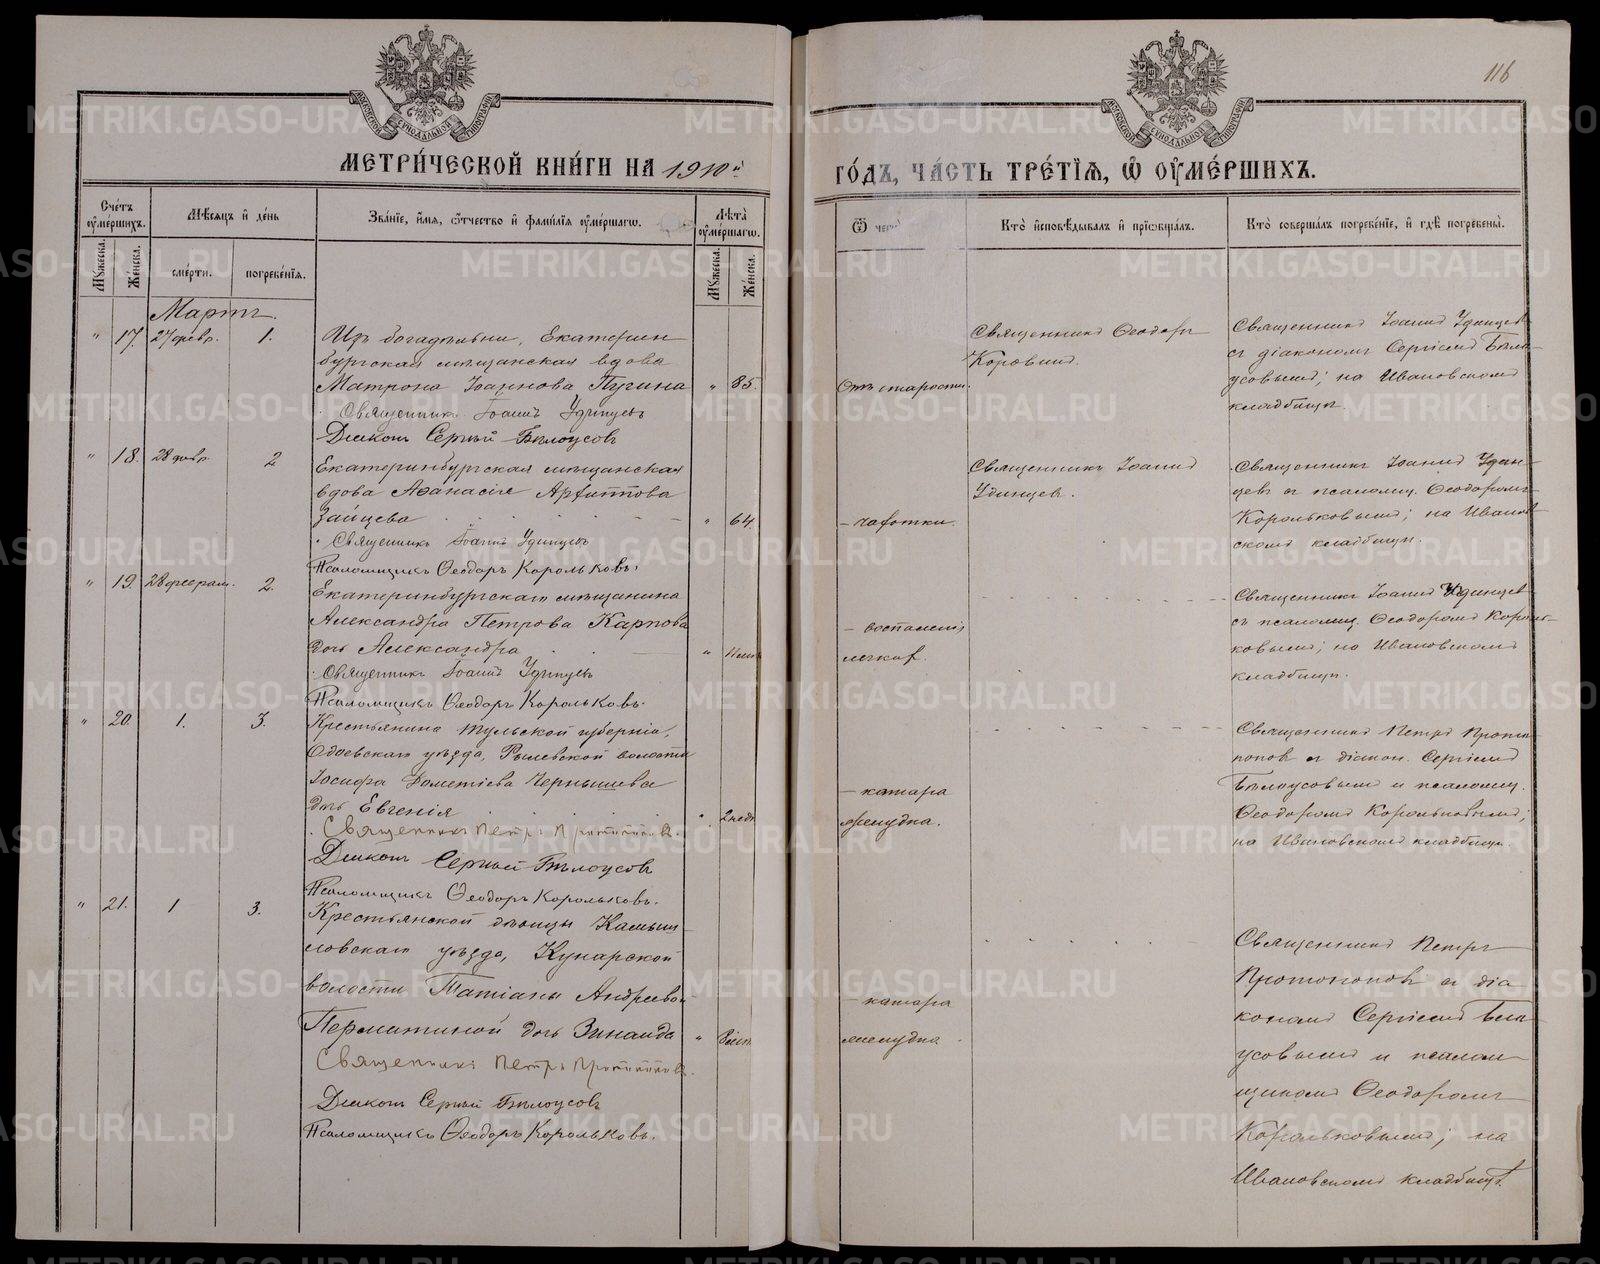 116
МЕТРИ́ЧЕСКОЙ КНИ́ГИ НА 1910й
ГО́ДЪ, ЧА́СТЬ ТРЕ́ТЇѦ, Ѡ ОУ҆МЕ́РШИХЪ.
Сче́тъ оу҆ме́ршихъ.
Мѣ́сѧцъ и҆ де́нь
Зва́нїе, и҆́мѧ, ѻ҆́тчество и҆ фами́лїѧ оу҆ме́ршагѡ.
Лѣ́та оу҆ме́ршагѡ.
Ѿ чегѡ̀
Кто̀ и҆сповѣ́дывалъ и҆ прїѡбща́лъ.
Кто̀ соверша́лъ погребе́нїе, и҆ гдѣ̀ погребены̀.
Мꙋ́жеска.
Же́нска.
сме́рти.
погребе́нїѧ.
Мꙋ́жеска.
Же́нска.
Мартъ.
" 17. 27 февр. 1.
Изъ богадѣльни, Екатерин
бургская мѣщанская вдова
Матрона Іоаннова Пугина " 85.
Священникъ Іоаннъ Удинцевъ
Діаконъ Сергій Бѣлоусовъ
Отъ старости.
Священникъ Ѳеодоръ
Коровинъ.
Священникъ Іоаннъ Удинцев
съ діакономъ Сергіемъ Бѣло-
усовымъ; на Ивановскомъ
кладбищѣ.
" 18. 28 февр 2
Екатеринбургская мѣщанская
вдова Аѳанасія Архиппова
Зайцева " 64.
Священникъ Іоаннъ Удинцевъ
Псаломщикъ Ѳеодоръ Корольковъ.
– чахотки.
Священникъ Іоаннъ
Удинцев.
Священникъ Іоаннъ Удин-
цев съ псаломщ. Ѳеодоромъ
Корольковымъ; на Иванов
скомъ кладбищѣ.
" 19. 28 феврал. 2.
Екатеринбургскаго мѣщанина
Александра Петрова Карпова
дочь Александра "
Священникъ Іоаннъ Удинцевъ
Псаломщикъ Ѳеодоръ Корольковъ.
– воспаленія
легких.
Священникъ Іоаннъ Удинцев
съ псаломщ. Ѳеодоромъ Король-
ковымъ; на Ивановскомъ
кладбищѣ.
" 20. 1. 3.
Крестьянина Тульской губерніи,
Одоевскаго уѣзда, Рылевской волости
Іосифа Дометіева Чернышева
дочь Евгенія " 2 нед
Священникъ Петръ Протопоповъ.
Діаконъ Сергій Бѣлоусовъ
Псаломщикъ Ѳеодоръ Корольковъ.
– катара
желудка.
Священникъ Петръ Прото
попов съ діакон. Сергіемъ
Бѣлоусовымъ и псаломщ.
Ѳеодоромъ Корольковымъ;
на Ивановскомъ кладбищѣ.
" 21. 1 3.
Крестьянской дѣвицы Камыш
ловскаго уѣзда, Кунарской
волости Татіаны Андреевой
Пермитиной дочь Зинаида "
Священникъ Петръ Протопоповъ.
Діаконъ Сергій Бѣлоусовъ
Псаломщикъ Ѳеодоръ Корольковъ.
– катара
желудка.
Священникъ Петръ
Протопопов съ діа
кономъ Сергіемъ Бѣло
усовымъ и псалом
щикомъ Ѳеодоромъ
Корольковымъ; на
Ивановскомъ кладбищѣ.